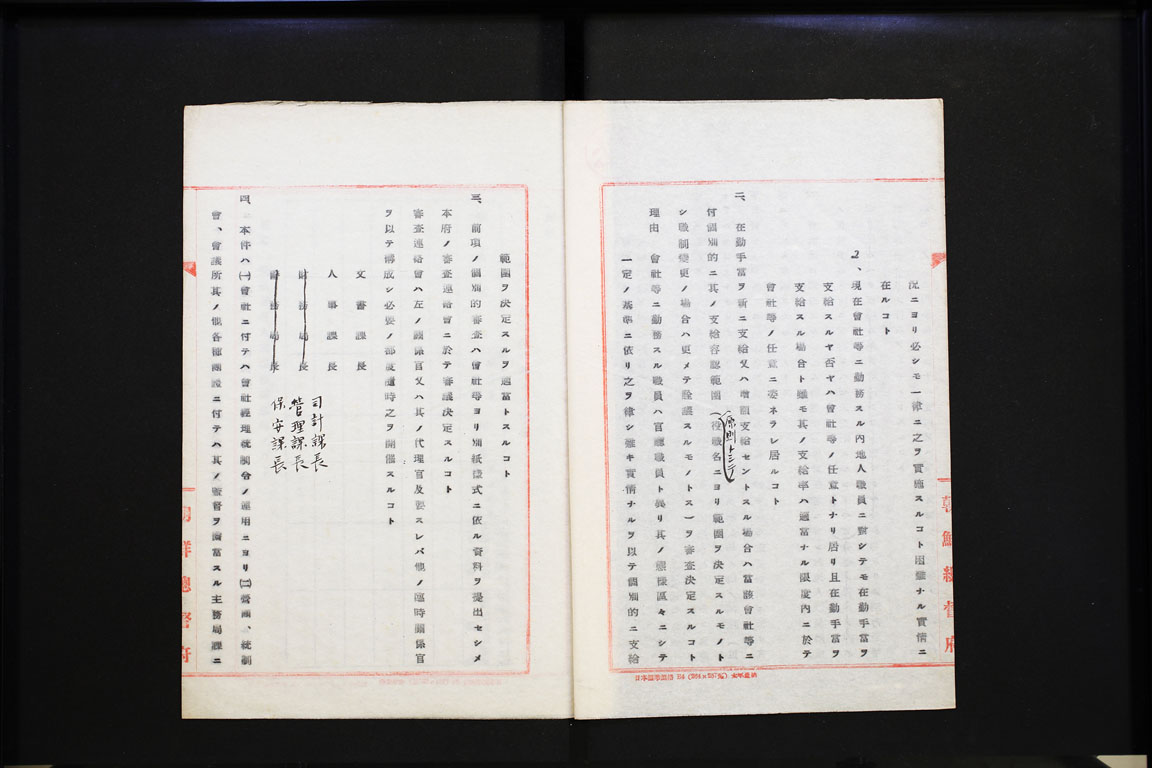 況ニヨリ必シモ一律ニ之ヲ實施スルコト困難ナル實情ニ
在ルコト
2、現在會社等ニ勤務スル內地人職員ニ對シテモ在勤手當ヲ
支給スルヤ否ヤハ會社等ノ任意トナリ居リ且在勤手當ヲ
支給スル場合ト雖モ其ノ支給率ハ適當ナル限度內ニ於テ
會社等ノ任意ニ委ネラレ居ルコト
二、在勤手當ヲ新ニ支給又ハ增額支給セントスル場合ハ當該會社等ニ
付個別的ニ其ノ支給容認範圍(役職名ニヨリ範圍ヲ決定スルモノト
原則トシテ
シ職制變更ノ場合ハ更メテ詮議スルモノトス)ヲ審査決定スルコト
理由 會社等ニ勤務スル職員ハ官廳職員ト異リ其ノ態樣區々ニシテ
一定ノ基準ニ依リ之ヲ律シ難キ實情ナルヲ以テ個別的ニ支給
朝鮮總督府
日本標準規格B4
範圍ヲ決定スルヲ適當トスルコト
三、前項ノ個別的審査ハ會社等ヨリ別紙樣式ニ依ル資料ヲ提出セシメ
本府ノ審査連絡會ニ於テ審議決定スルコト
審査連絡會ハ左ノ關係官又ハ其ノ代理官及要スレバ他ノ臨時關係官
ヲ以テ構成シ必要ノ都度隨時之ヲ開催スルコト
文書課長
人事課長
司計課長
財務局長
管理課長
警務局長
保安課長
四、本件ハ(一)會社ニ付テハ會社經理統制令ノ運用ニヨリ(二)營團、統制
會、會議所其ノ他各種團體ニ付テハ其ノ監督ヲ擔當スル主務局課ニ
朝鮮總督府